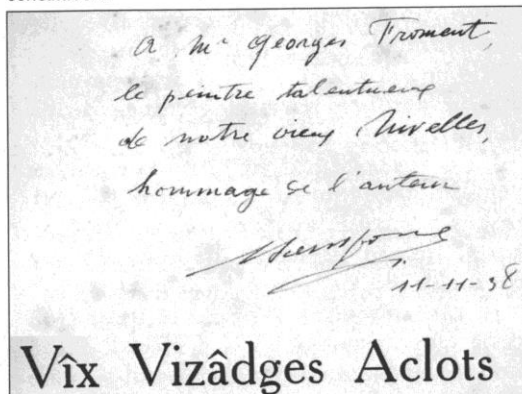 A Mr Georges Froment,
le peintre talentueux
de notre vieux Nivelles,
hommage de l'auteur
11-11-38
Vîx Vizâdges Aclots